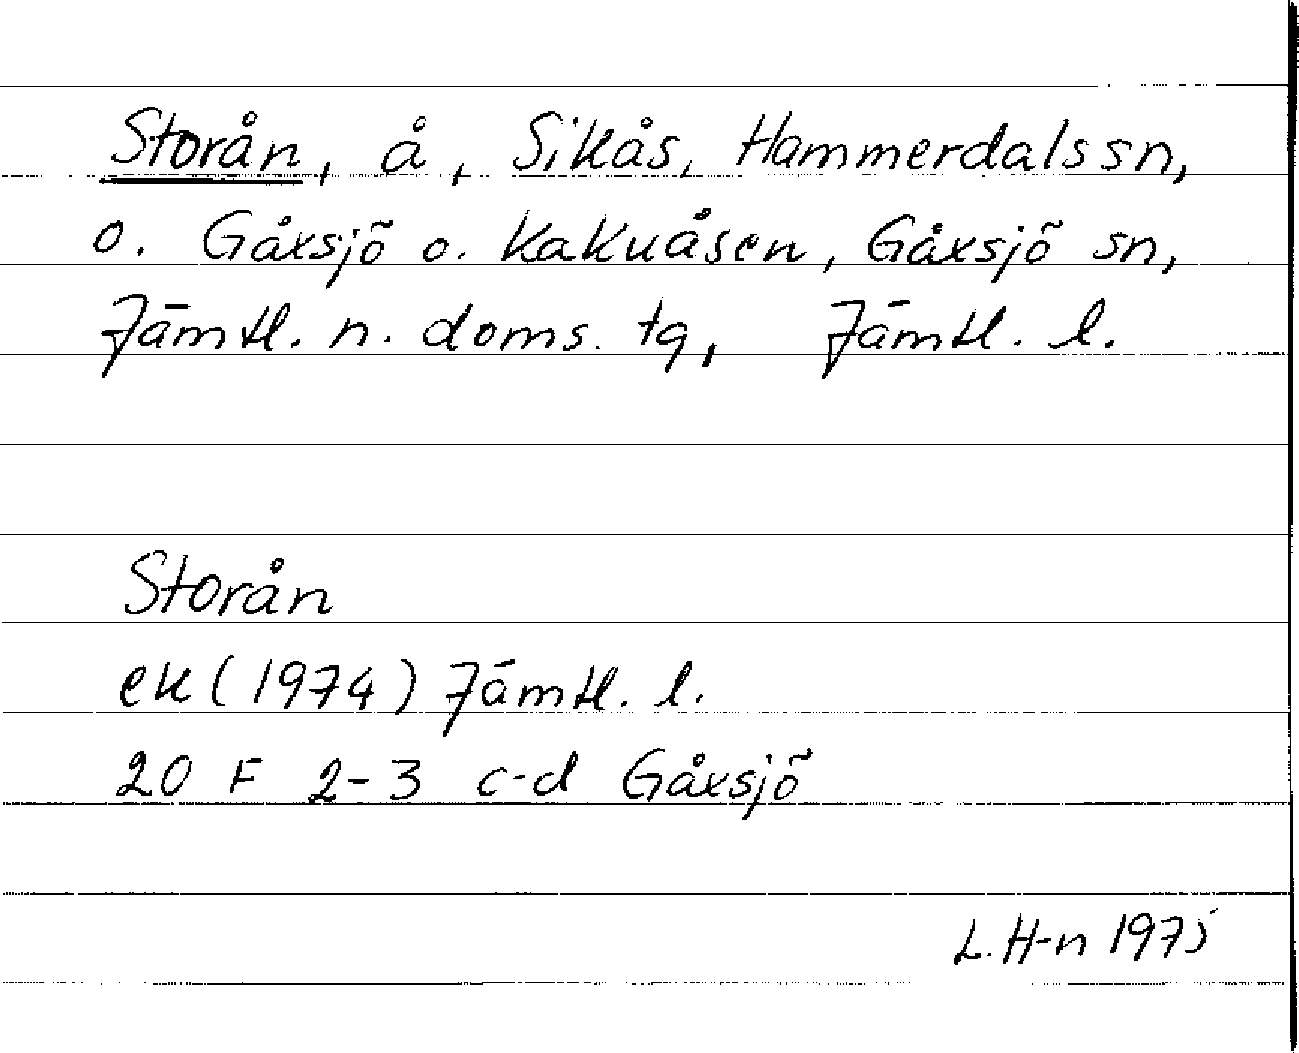 Storån, å, Sikås, Hammerdals sn,
o. Gåxsjö o. Kakuåsen, Gåxsjö sn,
Jämtl. n. doms. tg, Jämtl. l.
Storån
ek (1974) Jämtl. l.
20 F 2-3 c-d Gåxsjö
L. H-n 1975